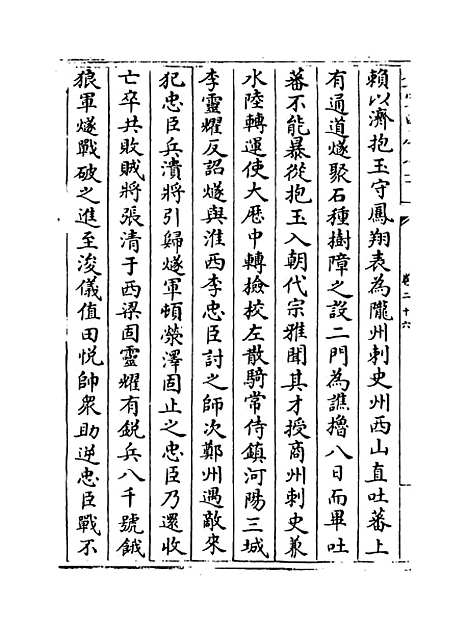 賴以濟抱玉守鳳翔表為隴州刺史州西山直吐蕃上
有通道燧聚石種樹障之設二門為譙擼八日而畢吐
蕃不能暴從抱玉入朝代宗雅聞其才授商州刺史兼
水陸轉運使大厯中轉檢校左散騎常侍鎮河陽三城
李靈耀反詔燧與淮西李忠臣討之師次鄭州遇敵來
犯忠臣兵潰將引歸燧軍頓滎澤固止之忠臣乃還收
亡卒共敗賊將張清于西梁固靈耀有銳兵八千號餓
狼軍燧戰破之進至浚儀值田悅帥衆助逆忠臣戰不
卷二十六